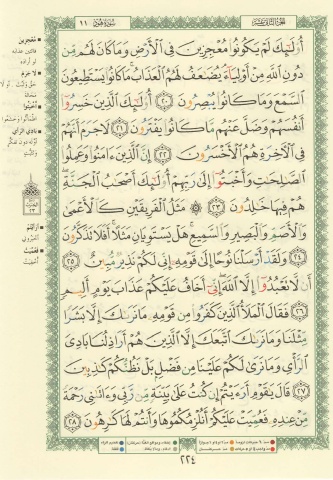 الجزء الثاني عشر
سورة هود
١١
أُوْلَٰٓئِكَ لَمْ يَكُونُوا۟ مُعْجِزِينَ فِى ٱلْأَرْضِ وَمَا كَانَ لَهُم مِّن
دُونِ ٱللَّهِ مِنْ أَوْلِيَآءَ يُضَٰعَفُ لَهُمُ ٱلْعَذَابُ مَا كَانُوا۟ يَسْتَطِيعُونَ
ٱلسَّمْعَ وَمَا كَانُوا۟ يُبْصِرُونَ ٢٠ أُوْلَٰٓئِكَ ٱلَّذِينَ خَسِرُوٓا۟
أَنفُسَهُمْ وَضَلَّ عَنْهُم مَّا كَانُوا۟ يَفْتَرُونَ ٢١ لَا جَرَمَ أَنَّهُمْ
فِى ٱلْأَخِرَةِ هُمُ ٱلْأَخْسَرُونَ ٢٢ إِنَّ ٱلَّذِينَ ءَامَنُوا۟ وَعَمِلُوا۟
ٱلصَّٰلِحَٰتِ وَأَخْبَتُوٓا۟ إِلَىٰ رَبِّهِمْ أُوْلَٰٓئِكَ أَصْحَٰبُ ٱلْجَنَّةِ
هُمْ فِيهَا خَٰلِدُونَ ٢٣ ۞ مَثَلُ ٱلْفَرِيقَيْنِ كَٱلْأَعْمَىٰ
وَٱلْأَصَمِّ وَٱلْبَصِيرِ وَٱلسَّمِيعِ هَلْ يَسْتَوِيَانِ مَثَلًا أَفَلَا تَذَكَّرُونَ
٢٤ وَلَقَدْ أَرْسَلْنَا نُوحًا إِلَىٰ قَوْمِهِۦٓ إِنِّى لَكُمْ نَذِيرٌ مُّبِينٌ ٢٥
أَن لَّا تَعْبُدُوٓا۟ إِلَّا ٱللَّهَ إِنِّىٓ أَخَافُ عَلَيْكُمْ عَذَابَ يَوْمٍ أَلِيمٍ
٢٦ فَقَالَ ٱلْمَلَأُ ٱلَّذِينَ كَفَرُوا۟ مِن قَوْمِهِۦ مَا نَرَىٰكَ إِلَّا بَشَرًا
مِّثْلَنَا وَمَا نَرَىٰكَ ٱتَّبَعَكَ إِلَّا ٱلَّذِينَ هُمْ أَرَاذِلُنَا بَادِىَ
ٱلرَّأْىِ وَمَا نَرَىٰ لَكُمْ عَلَيْنَا مِن فَضْلٍۭ بَلْ نَظُنُّكُمْ كَٰذِبِينَ
٢٧ قَالَ يَٰقَوْمِ أَرَءَيْتُمْ إِن كُنتُ عَلَىٰ بَيِّنَةٍ مِّن رَّبِّى وَءَاتَىٰنِى رَحْمَةً
مِّنْ عِندِهِۦ فَعُمِّيَتْ عَلَيْكُمْ أَنُلْزِمُكُمُوهَا وَأَنتُمْ لَهَا كَٰرِهُونَ ٢٨
٢٢٤